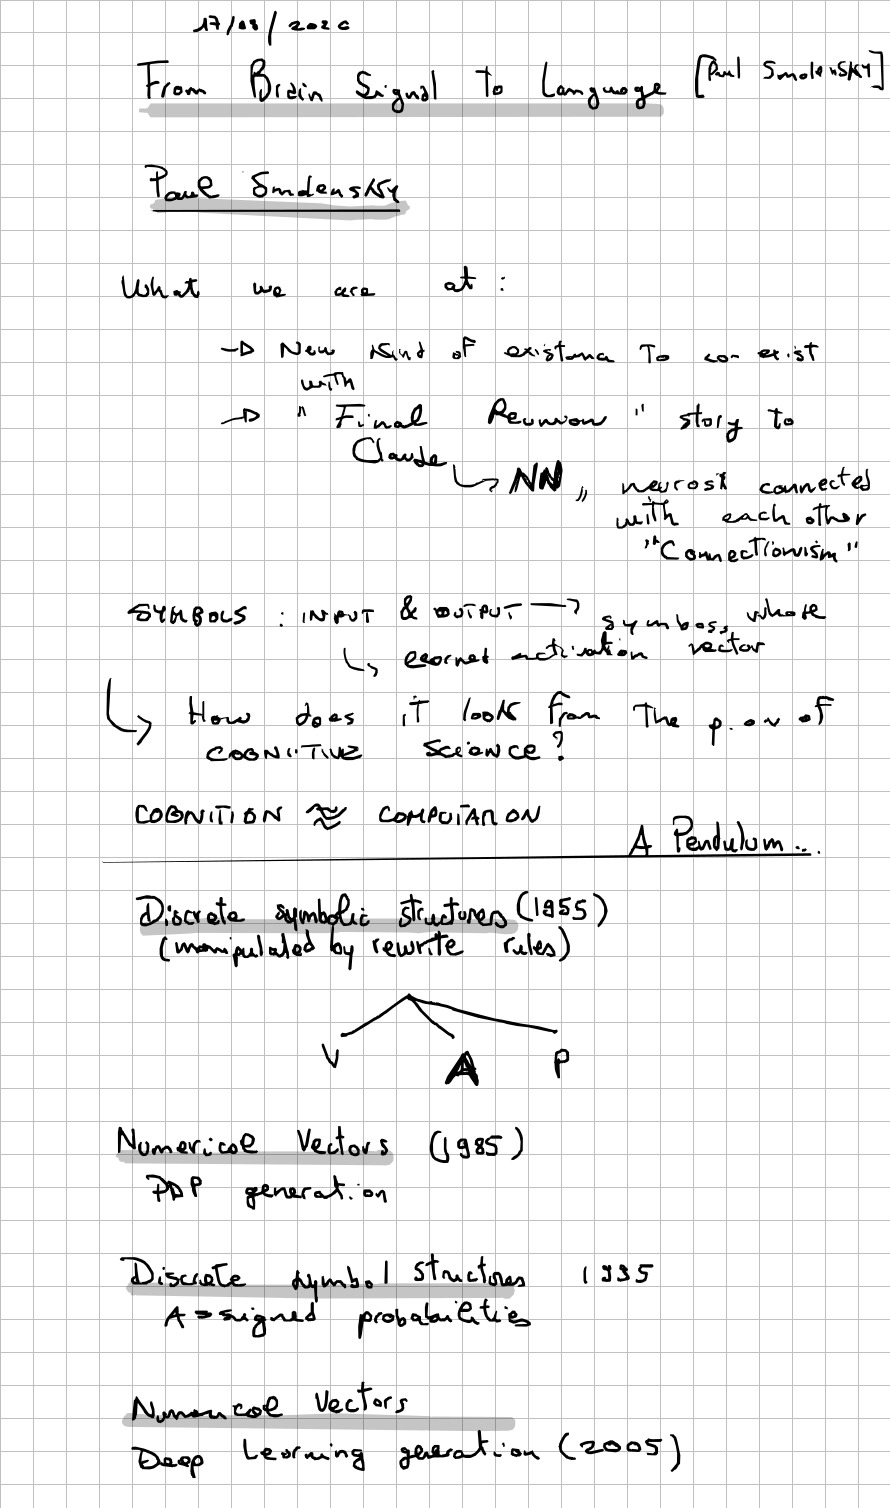 From Brain Signal to Language [Paul Smolensky]
Paul Smolensky
What we are at :
→ New kind of existence to co-exist
with
→ "Final Reunion" story to
Claude
↳ NN " connected
with each other
"Connectionism"
SYMBOLS : INPUT & OUTPUT → symbols, whose
↳ activation vector
↳ How does it look from the p.ov of
COGNITIVE science?
COGNITION ≈ COMPUTATION
A Pendulum...
Discrete symbolic structures (1955)
(manipulated by rewrite rules)
V A P
Numerical Vectors (1985)
PDP generation
Discrete symbol structures 1995
Assigned probabilities
Numerical Vectors
Deep Learning generation (2005)